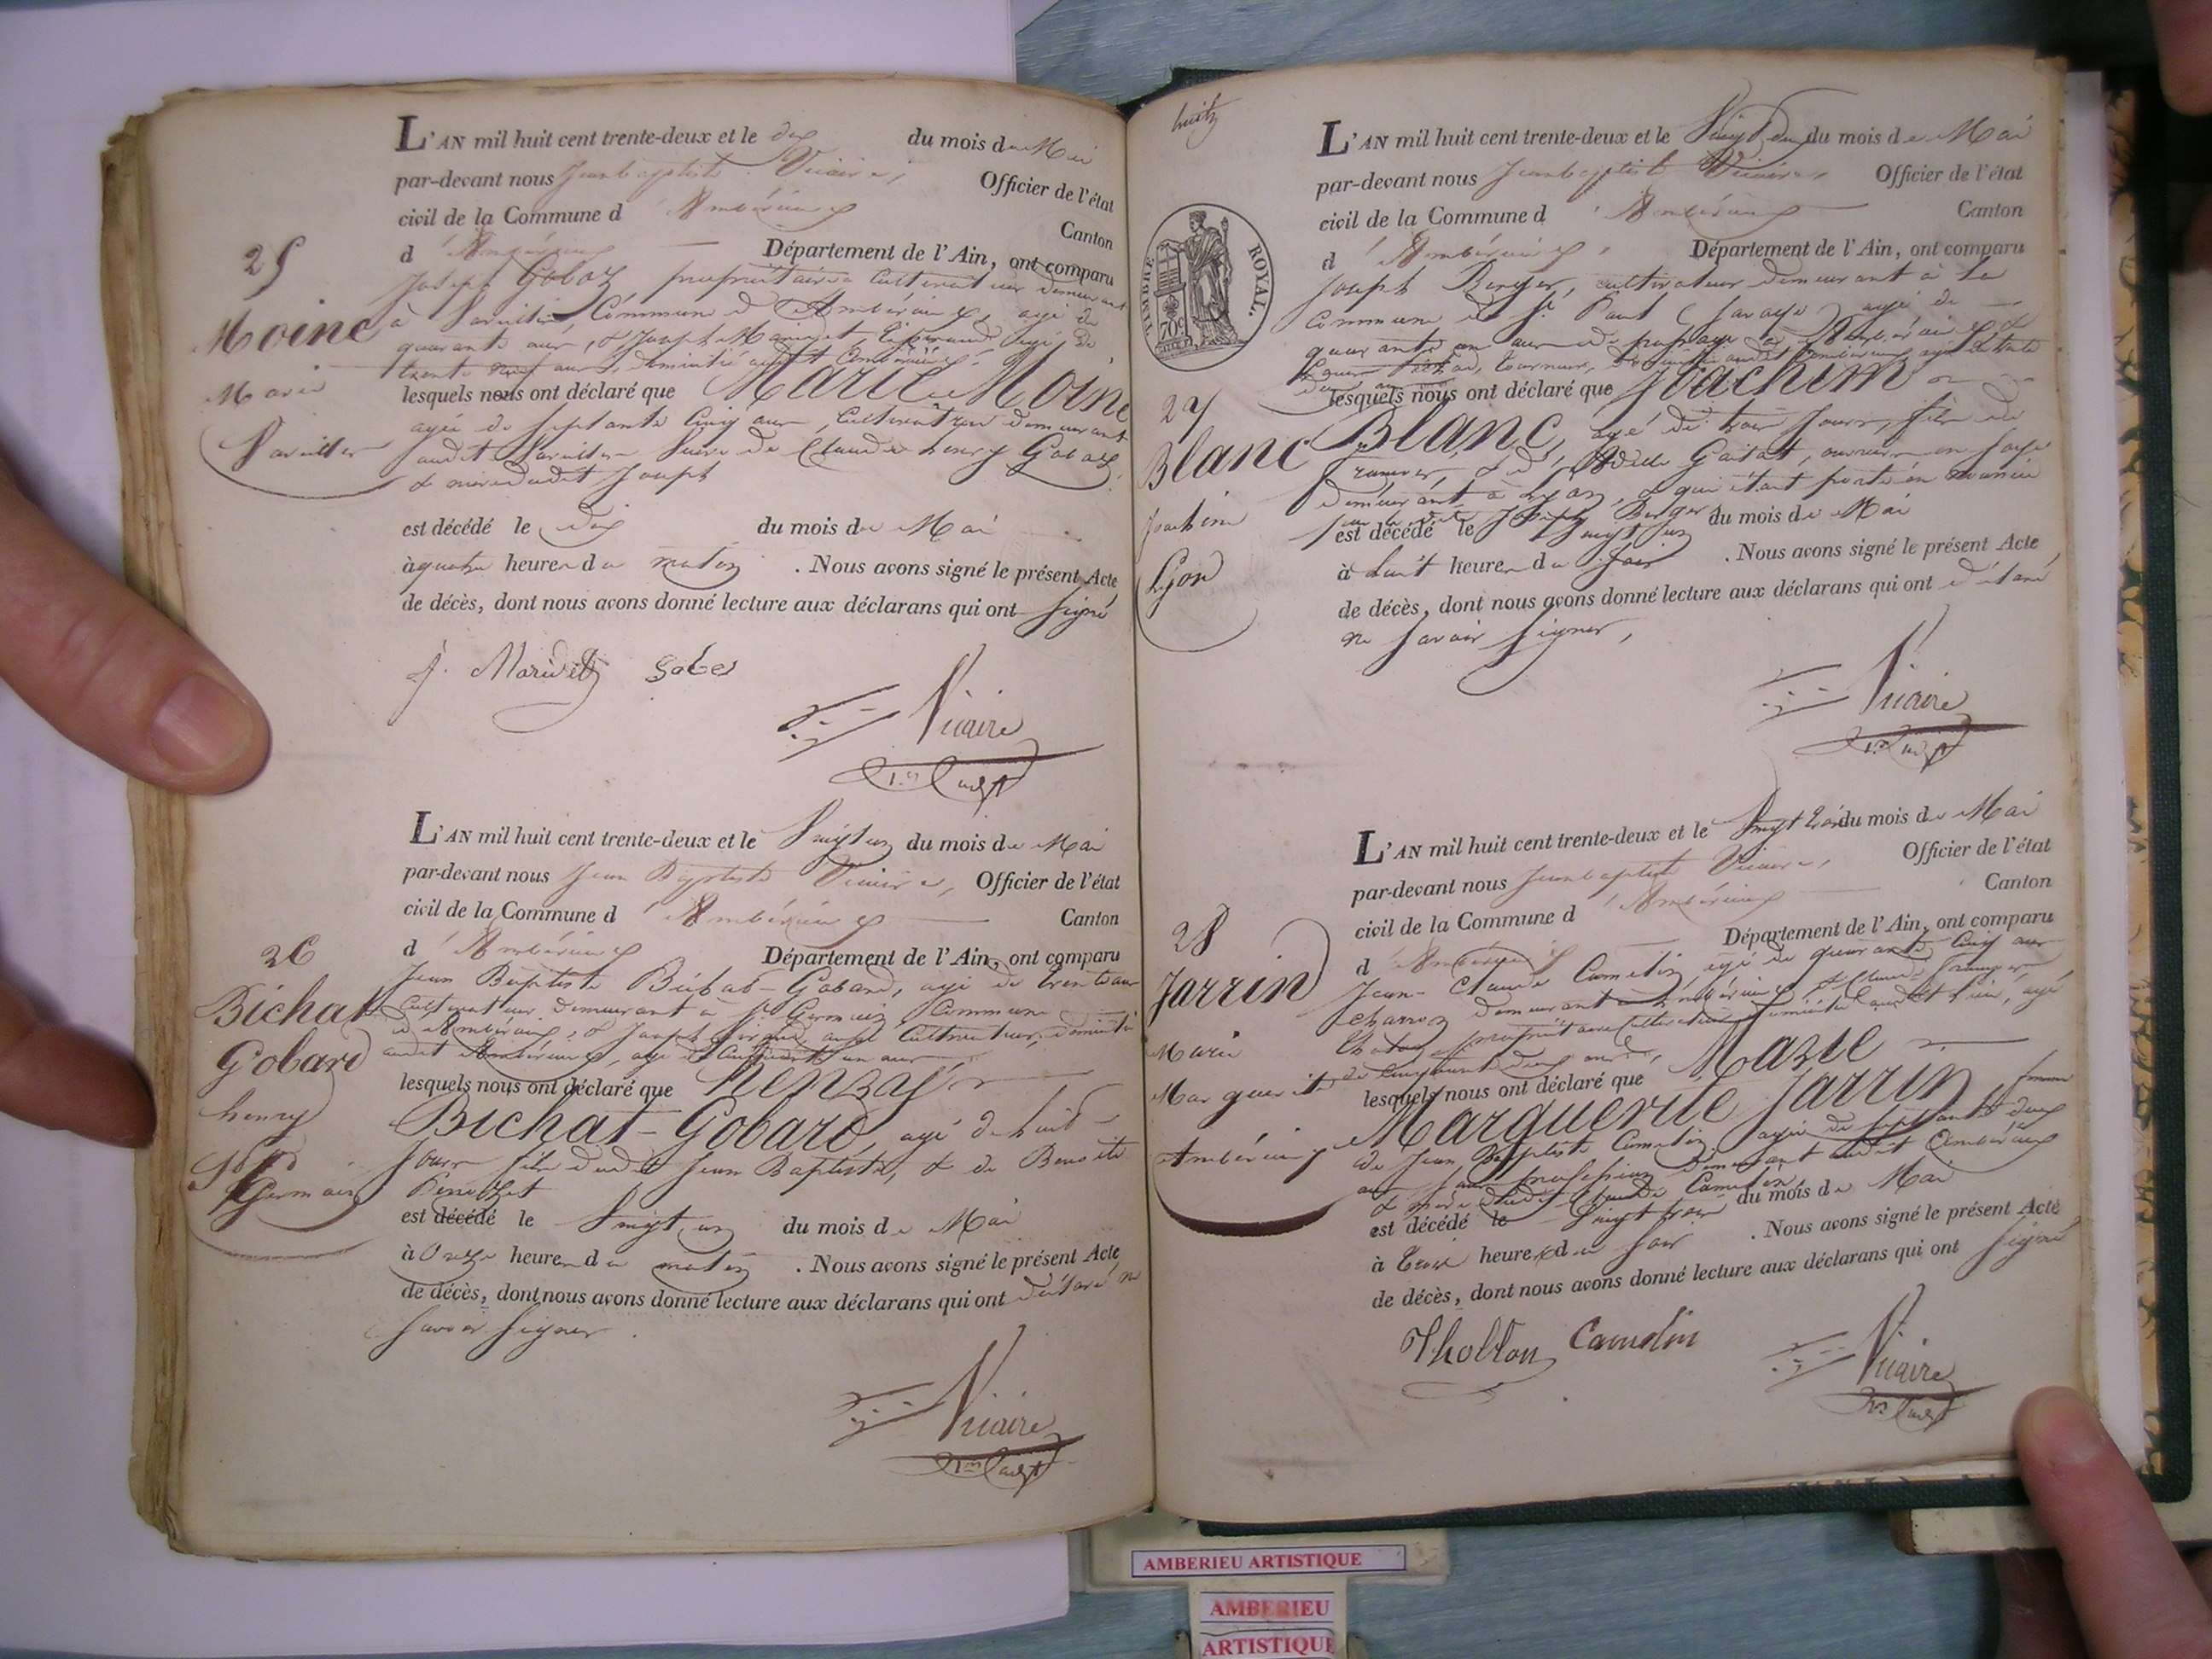 L'AN mil huit cent trente-deux et le dix du mois de Mai
par-devant nous Jean baptiste Vicaire, Officier de l'état
civil de la Commune d'Ambérieux Canton
d'Ambérieux Département de l'Ain, ont comparu
Joseph Goboz propriétaire Cultivateur demeurant
à Vareilles, Commune d'Ambérieux, agé de
quarante ans, & Joseph
trente neuf ans, domicilié audit Ambérieux
lesquels nous ont déclaré que Marie Moine
agée de septante Cinq ans, Cultivatrice demeurant
audit Vareilles Veuve de Claude henry Goboz
& mère dudit Joseph
est décédé le dix du mois de Mai
à quatre heures du matin. Nous avons signé le présent Acte
de décès, dont nous avons donné lecture aux déclarans qui ont signé
25
Moine
Marie
Vareilles
Vicaire
L'AN mil huit cent trente-deux et le Vingt un du mois de Mai
par-devant nous Jean Baptiste Vicaire, Officier de l'état
civil de la Commune d'Ambérieux Canton
d'Ambérieux Département de l'Ain, ont comparu
Jean Baptiste Bichat-Gobard, agé de trente ans
Cultivateur demeurant à St Germain Commune
d'Ambérieux, & Joseph aussi Cultivateur, domicilié
audit Ambérieux, agé de Cinquante un ans
lesquels nous ont déclaré que henry
Bichat-Gobard, agé de huit
Jours fils dudit Jean Baptiste, & de Benoite
est décédé le Vingt un du mois de Mai
à Onze heures du matin. Nous avons signé le présent Acte
de décès, dont nous avons donné lecture aux déclarans qui ont déclaré ne
savoir signer.
26
Bichat
Gobard
henry
St Germain
Vicaire
huit
TIMBRE ROYAL.
70c
L'AN mil huit cent trente-deux et le Vingt deux du mois de Mai
par-devant nous Jean baptiste Vicaire, Officier de l'état
civil de la Commune d'Ambérieux Canton
d'Ambérieux, Département de l'Ain, ont comparu
Joseph Berger, cultivateur demeurant à la
Commune de St Paul agé de
quarante un ans de passage à Ambérieux &
tourneur, domicilié audit Ambérieux, agé de trente
lesquels nous ont déclaré que Joachim
Blanc, agé de trois Jours, fils de
& de ouvrière en soye
demeurant à Lyon, & qui étant porté en nourrice
par le dit Joseph Berger
est décédé le Vingt un du mois de Mai
à huit heures du soir. Nous avons signé le présent Acte
de décès, dont nous avons donné lecture aux déclarans qui ont déclaré
ne savoir signer,
27
Blanc
Joachim
Lyon
Vicaire
L'AN mil huit cent trente-deux et le Vingt trois du mois de Mai
par-devant nous Jean baptiste Vicaire, Officier de l'état
civil de la Commune d'Ambérieux Canton
d'Ambérieux Département de l'Ain, ont comparu
Jean-Claude Cametin agé de quarante Cinq ans
charron demeurant à Ambérieux, & Claude François
propriétaire Cultivateur domicilié audit lieu, agé
de Cinquante deux ans,
lesquels nous ont déclaré que Marie
Marguerite Jarrin femme
de Jean Baptiste Cametin agée de septante deux
ans sans profession demeurant audit Ambérieux
& mère dudit Claude Cametin
est décédé le Vingt trois du mois de Mai
à trois heures du soir. Nous avons signé le présent Acte
de décès, dont nous avons donné lecture aux déclarans qui ont signé
28
Jarrin
Marie
Marguerite
Ambérieux
Vicaire
AMBERIEU ARTISTIQUE
AMBERIEU
ARTISTIQUE